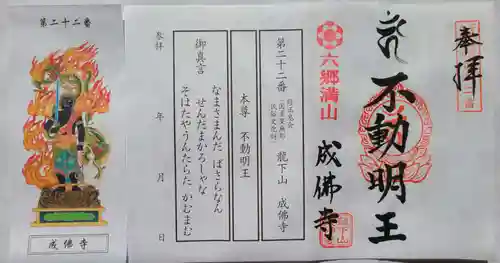 第二十二番
成佛寺
奉拝
不動明王
六郷満山
成佛寺
第二十二番
龍下山 成佛寺
本尊 不動明王
御真言
なまさまんだ ばさらなん
せんだまかろしゃな
そはたやうんたらた かむまむ
参拝 年 月 日